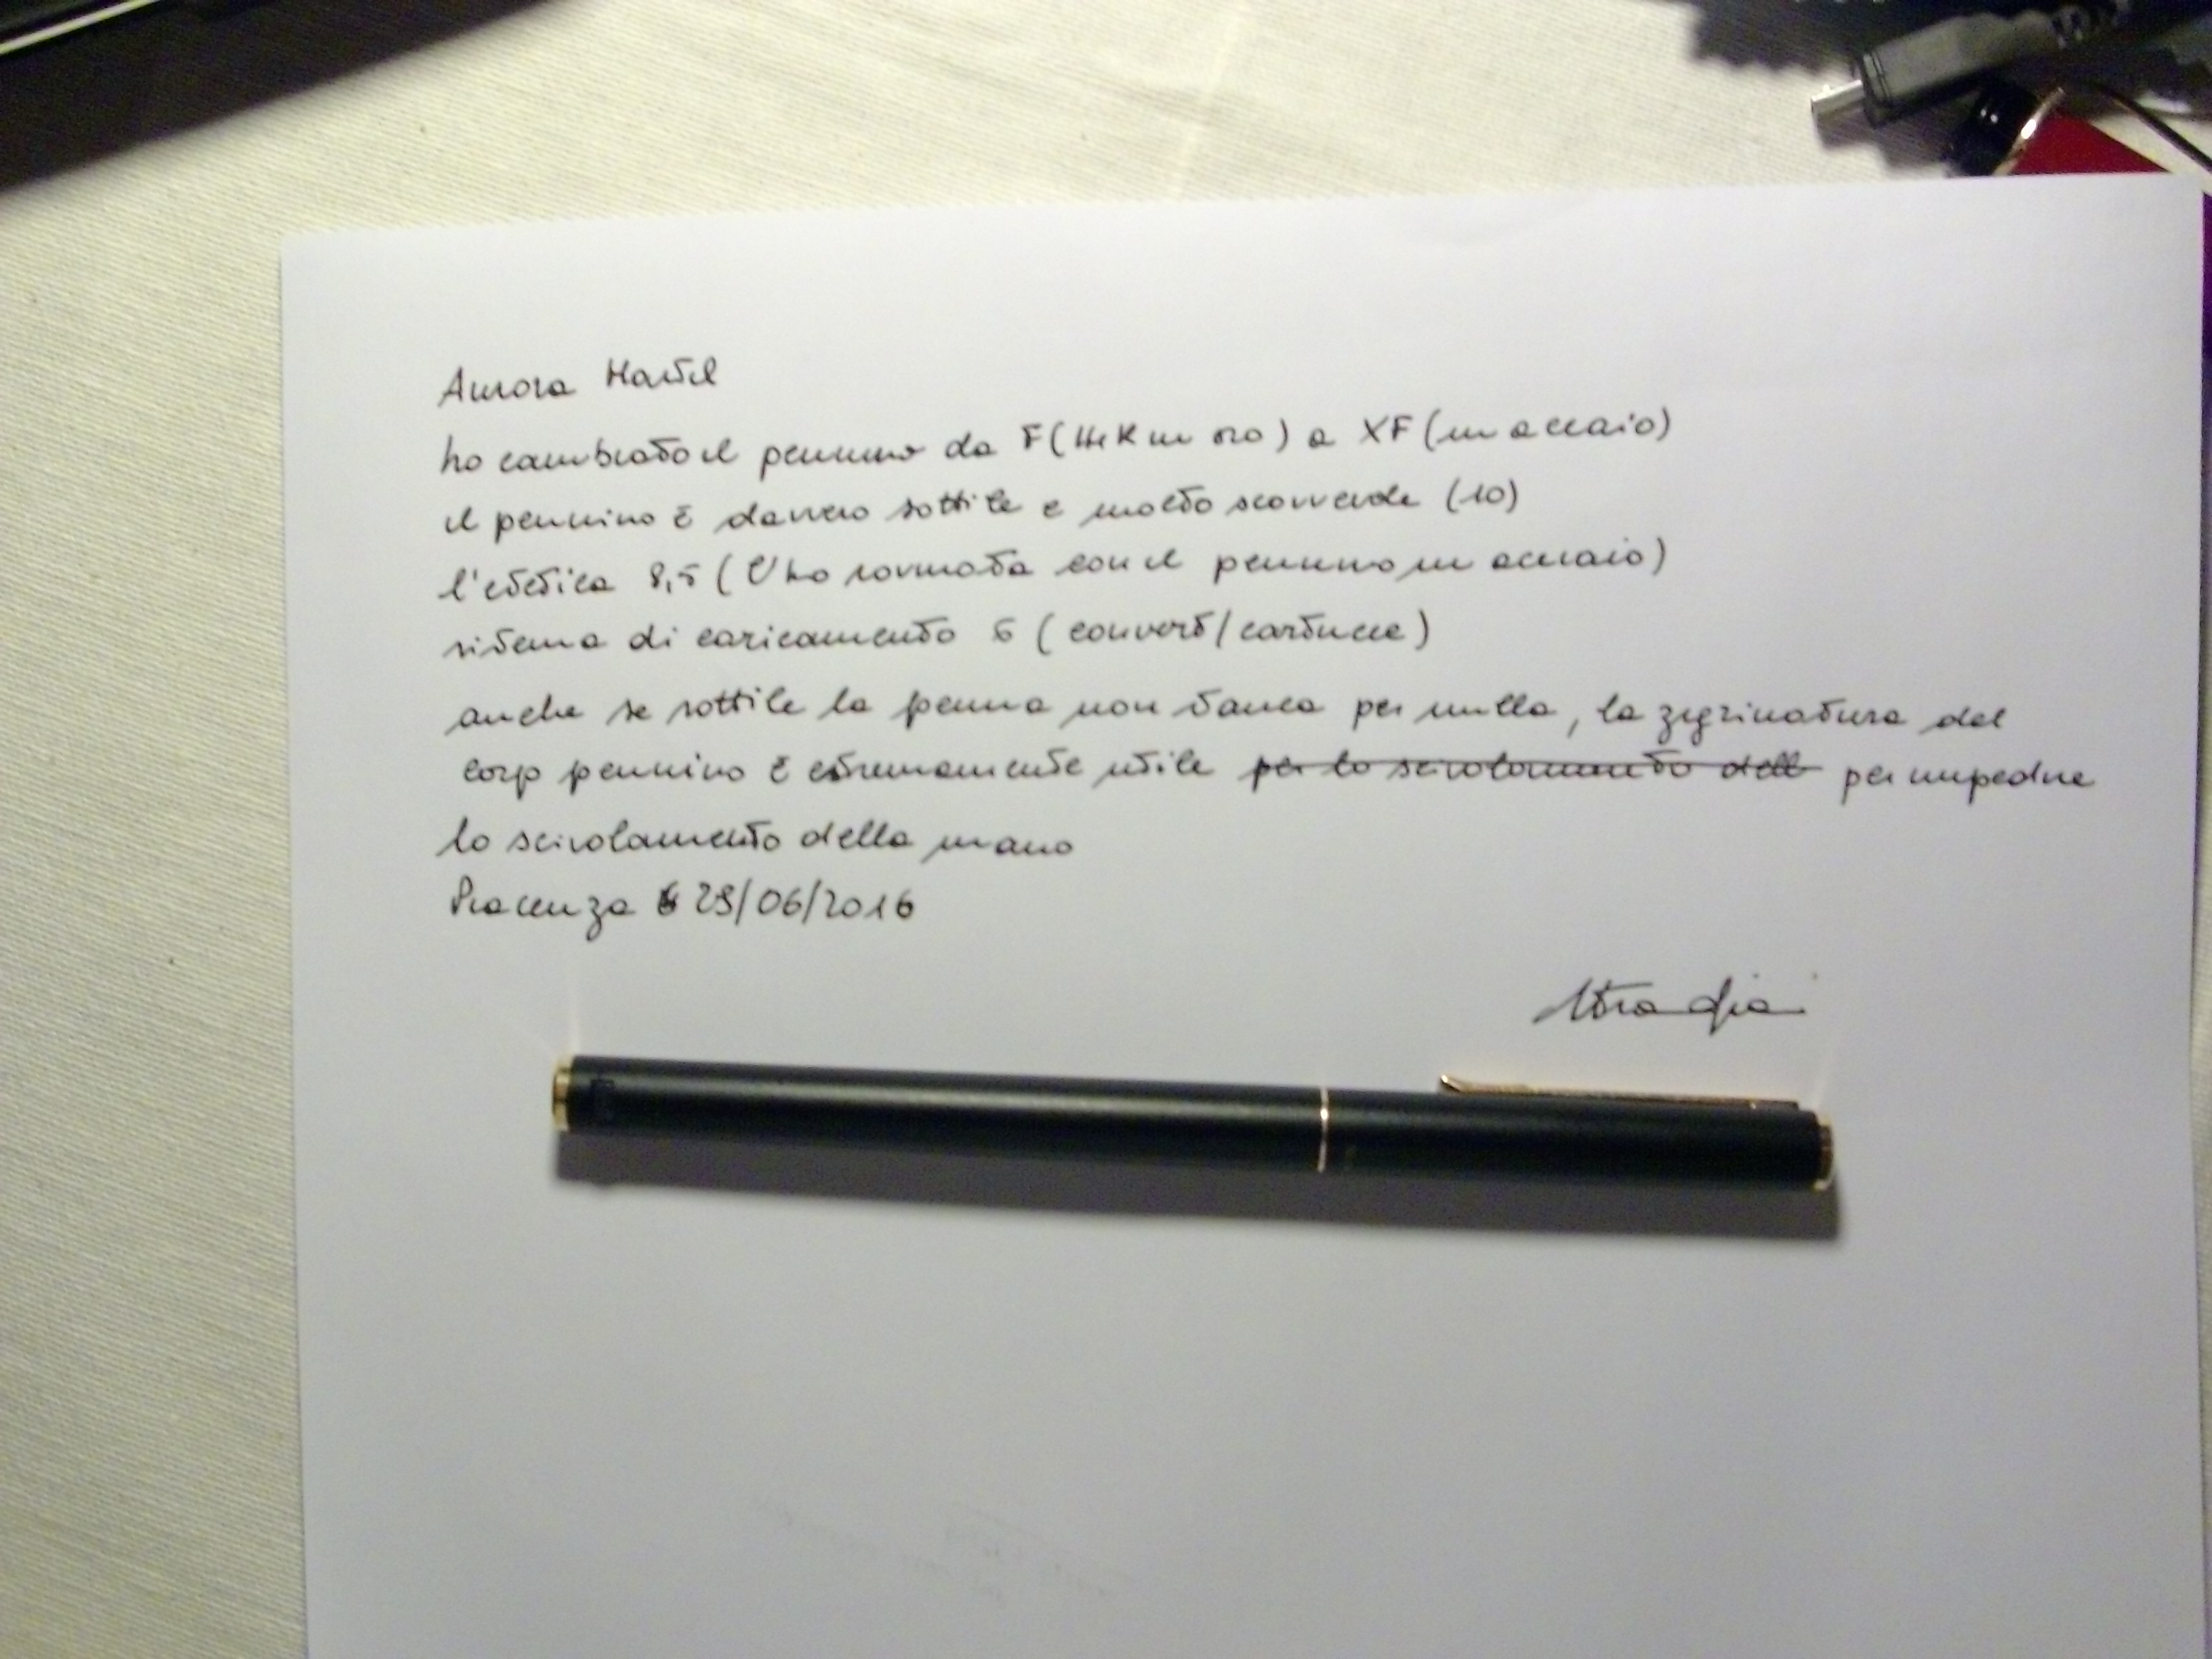 Aurora Hastil
ho cambiato il pennino da F (14K in oro) a XF (in acciaio)
il pennino è davvero sottile e molto scorrevole (10)
l'estetica 8,5 (l'ho rovinata con il pennino in acciaio)
sistema di caricamento 5 (convert/cartucce)
anche se sottile la penna non stanca per nulla, la zigrinatura del
corpo pennino è estremamente utile per lo scivolamento dell per impedire
lo scivolamento della mano
Piacenza 29/06/2016